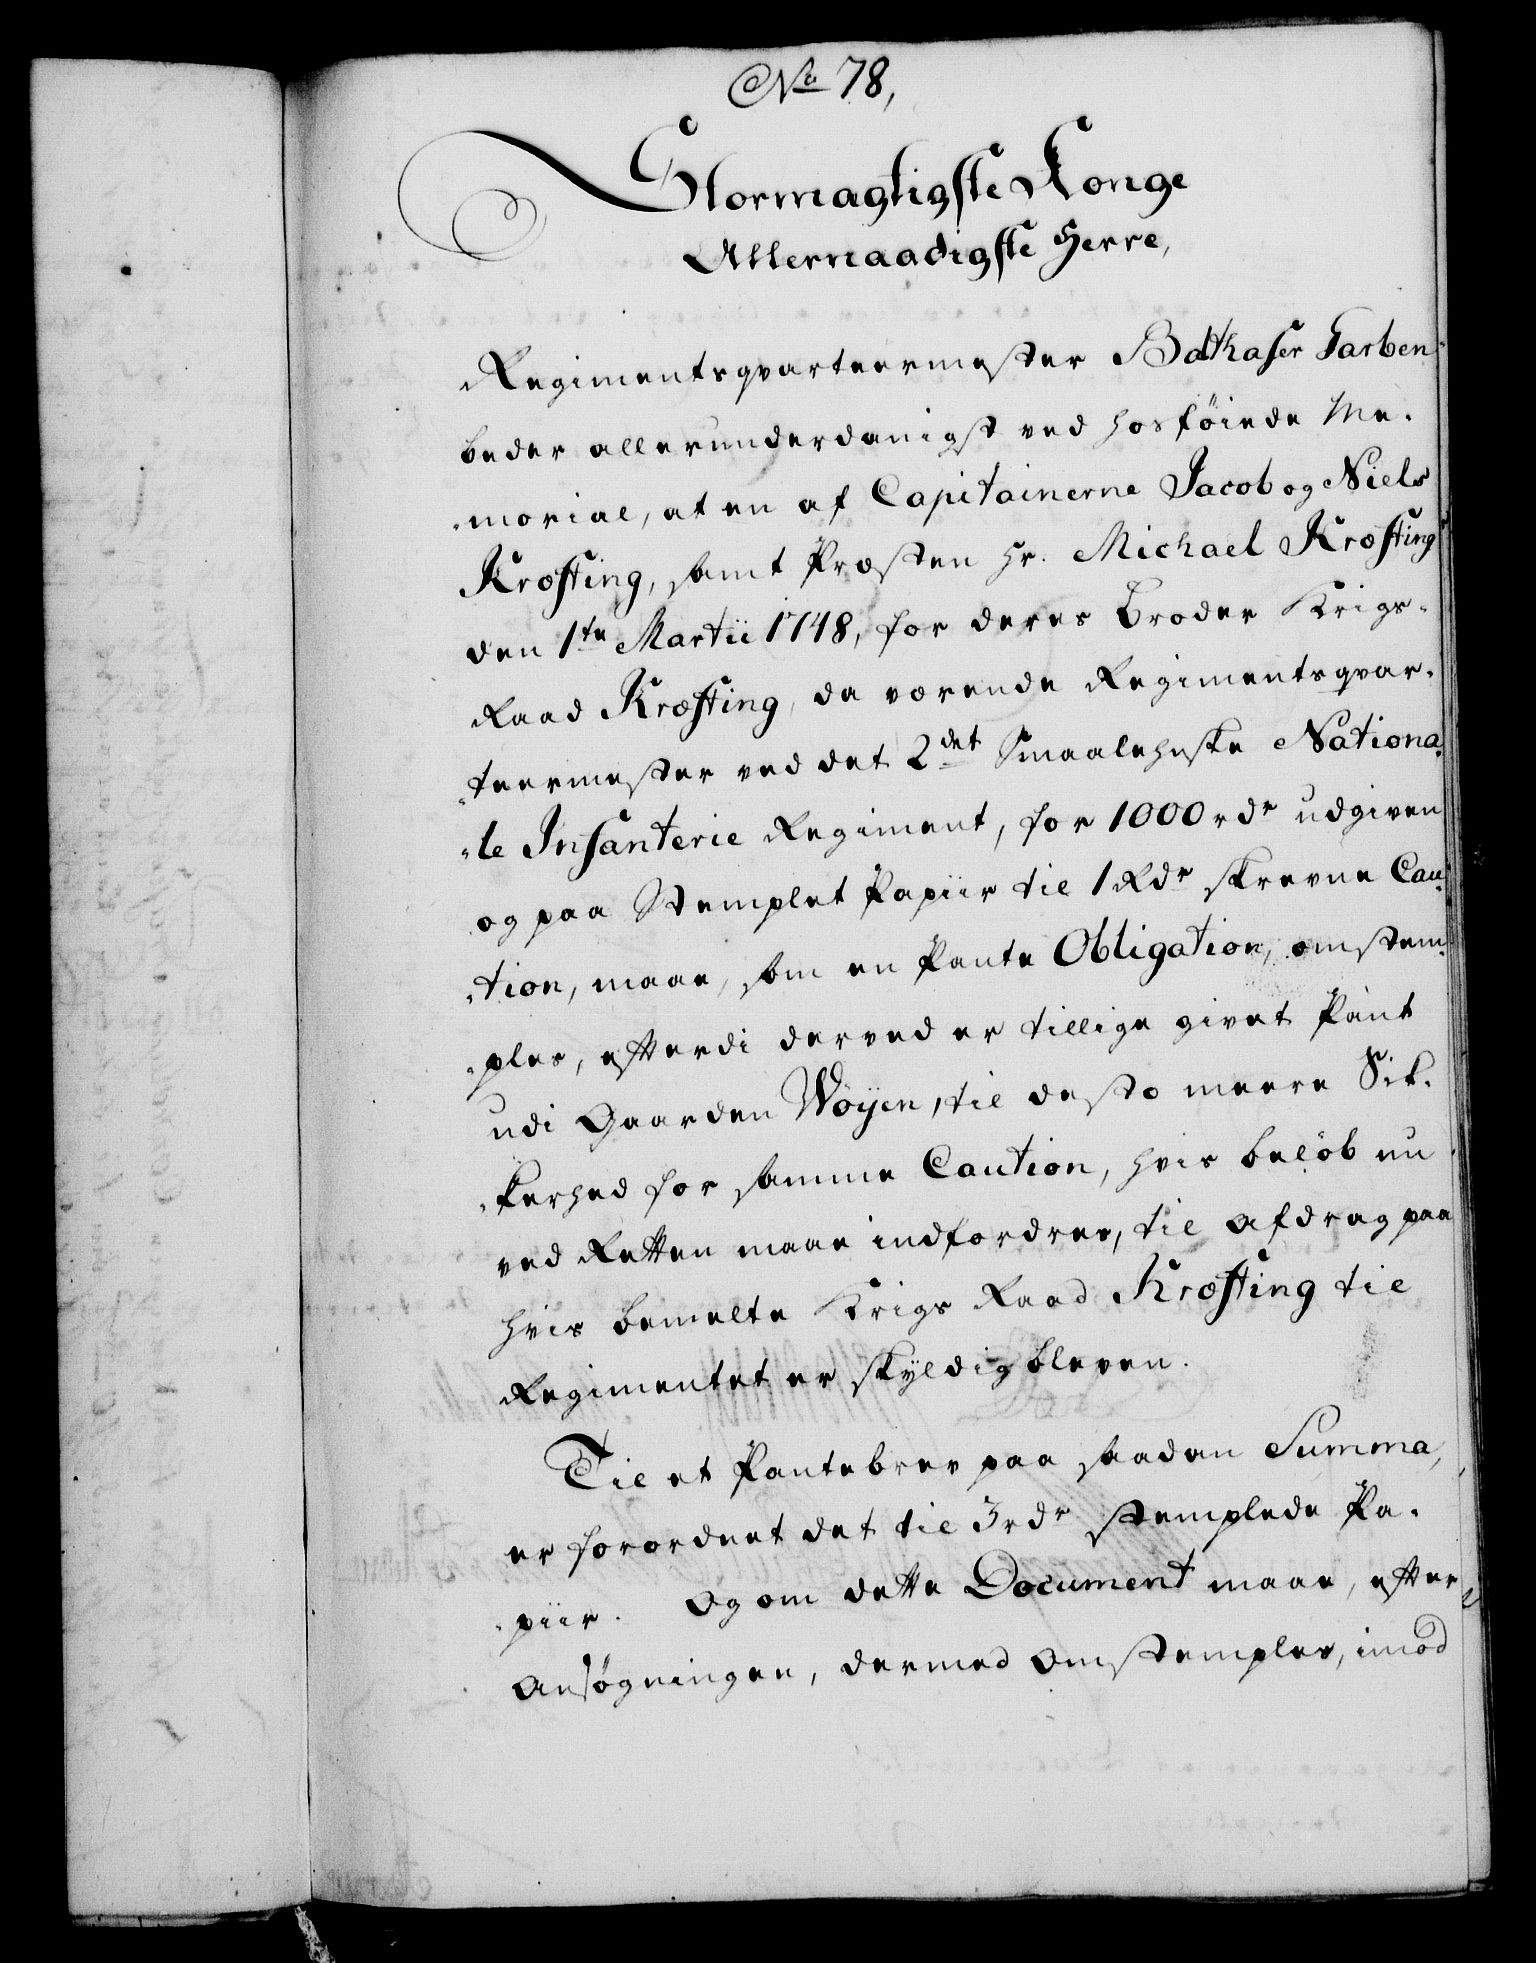 No 78,
Stormagtigste Konge
Allernaadigste Herre,
Regimentsqvarteermester Balthaser Farben
beder allerunderdanigst ved hosföiede Me-
-morial, at en af Capitainerne Jacob og Niels
Kræfting, samt Præsten Hr. Michael Kræfting
den 1te Martii 1748, for deres Broder Krigs-
Raad Kræfting, da værende Regimentsqvar-
-teermester ved det 2det Smaalehnske Nationa-
-le Infanterie Regiment, for 1000 rdr udgiven
og paa Stemplet Papiir til 1 Rdr skrevne Cau-
-tion, maae, som en Pante Obligation, omstem-
-ples, efterdi derved er tillige givet Pant
udi Gaarden Wöyen, til desto meere Sik-
-kerhed for samme Caution, hvis belöb nu
ved Retten maae indfordres, til Afdrag paa
hvis bemelte Krigs Raad Kræfting til
Regimentet er skyldig bleven.
Til et Pantebrev paa saadan Summa,
er forordnet det til 3 rdr stemplede Pa-
-piir. Og om dette Document maae, efter
Ansögningen, dermed Omstemples, imod